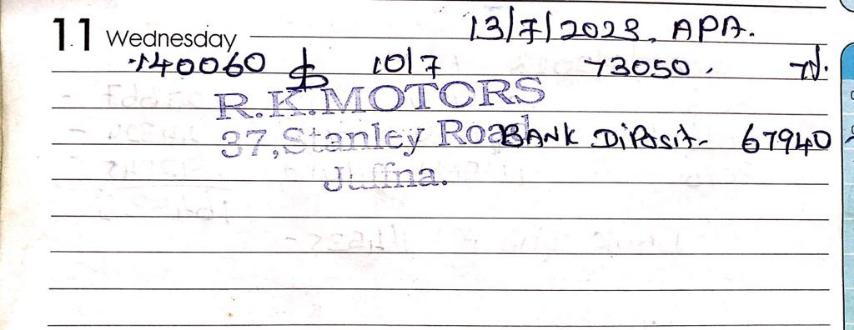 11 Wednesday 13/7/2023. APA.
140060 10/7 73050.
R.K.MOTORS
37,Stanley Road BANK Diposit- 67940
Jaffna.